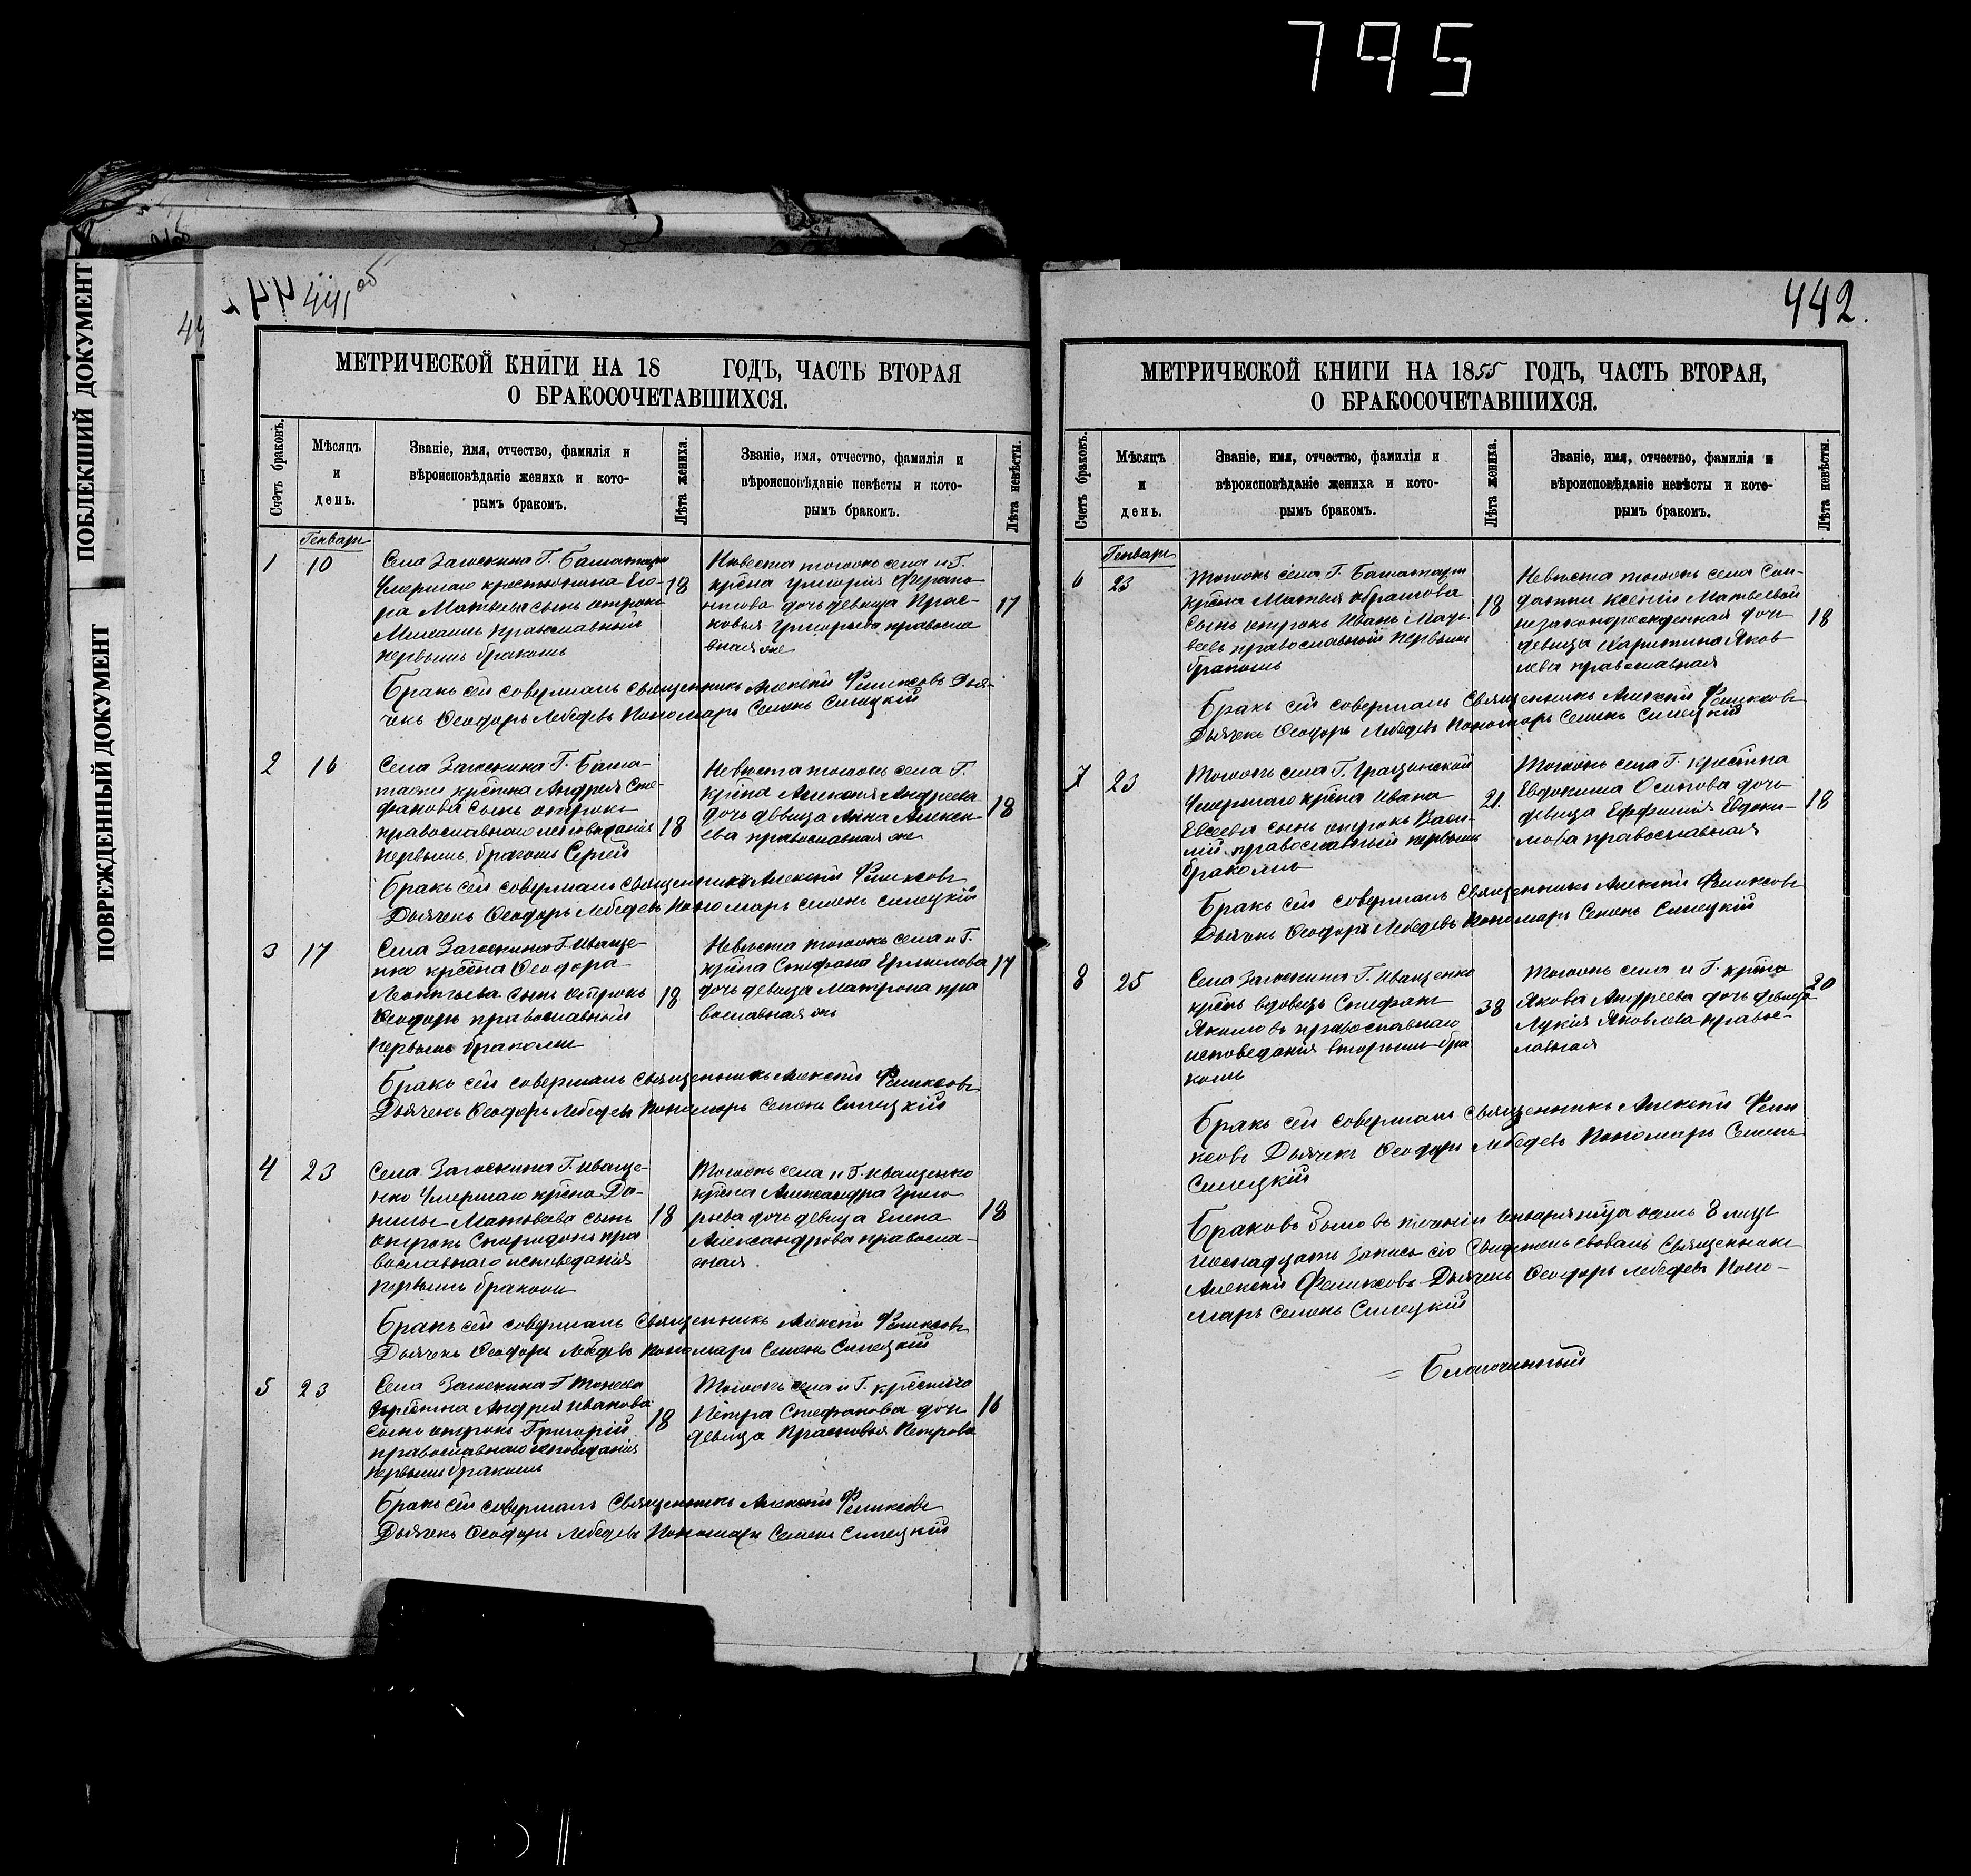 795
ПОБЛЕКШИЙ ДОКУМЕНТ
ПОВРЕЖДЕННЫЙ ДОКУМЕНТ
441об
МЕТРИЧЕСКОЙ КНИГИ НА 18 ГОДЪ, ЧАСТЬ ВТОРАЯ
О БРАКОСОЧЕТАВШИХСЯ.
Счетъ браковъ.
Мѣсяцъ
и
день.
Званіе, имя, отчество, фамилія и
вѣроисповѣданіе жениха и кото-
рымъ бракомъ.
Лѣта жениха.
Званіе, имя, отчество, фамилія и
вѣроисповѣданіе невѣсты и кото-
рымъ бракомъ.
Лѣта невѣсты.
Генварь
1 10
Села Загоскина Г. Баматази
Умершаго крестьянина Его-
ра Матвѣева сынъ отрокъ
православный
первымъ бракомъ
18
Невеста тогожъ села и Г.
крѣна Григорія Ферапо-
нтова дочь девица Прас-
ковья Григорьева правосла
вная же
17
Бракъ сей совершалъ Священникъ Алексѣй Феликсовъ Дья-
чекъ Ѳеодоръ Лебедевъ Пономарь Семенъ Силецкій
2 16
Села Загоскина Г. Бама-
тази крѣстна Андрея Сте-
фанова сынъ отрокъ
православнаго исповѣданія
первымъ бракомъ Сергей
18
Невѣста тогожъ села Г.
крѣна Алексѣя Андреева
дочь дѣвица Анна Алексѣ-
ева православная же
18
Бракъ сей совершалъ Священникъ Алексѣй Феликсовъ
Дьячекъ Ѳеодоръ Лебедевъ Пономарь Семенъ Силецкій
3 17
Села Загоскина Г. Иваще-
нко крѣсна Ѳеодора
Леонтьева сынъ отрокъ
Ѳеодоръ православный
первымъ бракомъ
18
Невѣста тогожъ села и Г.
крѣна Стефана Ермилова
дочь девица Матрона пра
вославная же
17
Бракъ сей совершалъ Священникъ Алексѣй Феликсовъ
Дьячекъ Ѳеодоръ Лебедевъ Пономарь Семенъ Силецкій
4 23
Села Загоскина Г. Иваще-
нко Умершаго крѣсна Да-
нилы Матвѣева сынъ
отрокъ Спиридонъ пра
вославнаго исповеданія
первымъ бракомъ
18
Тогожъ села и Г. Иващенко
крѣсна Александра Григо
рьева дочь девица Елена
Александрова правосла-
вная.
18
Бракъ сей совершалъ Священникъ Алексѣй Феликсовъ
Дьячекъ Ѳеодоръ Лебедевъ Пономарь Семенъ Силецкій
5 23
Села Загоскина Г
крѣстна Андрея Иванова
сынъ отрокъ Григорій
православнаго исповѣданія
первымъ бракомъ
18
Тогожъ села и Г. крѣснина
Петра Стефанова дочь
девица Прасковья Петрова
16
Бракъ сей совершалъ Священникъ Алексѣй Феликсовъ
Дьячекъ Ѳеодоръ Лебедевъ Пономарь Семенъ Силецкій
442.
МЕТРИЧЕСКОЙ КНИГИ НА 1855 ГОДЪ, ЧАСТЬ ВТОРАЯ,
О БРАКОСОЧЕТАВШИХСЯ.
Счетъ браковъ.
Мѣсяцъ
и
день.
Званіе, имя, отчество, фамилія и
вѣроисповѣданіе жениха и кото-
рымъ бракомъ.
Лѣта жениха.
Званіе, имя, отчество, фамилія и
вѣроисповѣданіе невѣсты и кото-
рымъ бракомъ.
Лѣта невѣсты.
Генварь
6 23
Тогожъ села Г. Баматази
крѣсна Матвѣя Абрамова
сынъ отрокъ Иванъ Мат-
веевъ православный первымъ
бракомъ
18
Невѣста тогожъ села Сол-
датки Ксеніи Матвеевой
незаконорожденная дочь
девица Харитина Яков-
лева православная
18
Бракъ сей совершалъ Священникъ Алексѣй Феликсовъ
Дьячекъ Ѳеодоръ Лебедевъ Пономарь Семенъ Силецкій
7 23
Тогожъ села Г. Грацинской
Умершаго крѣсна Ивана
Евсеева сынъ отрокъ Васи-
лій православный первымъ
бракомъ
21.
Тогожъ села Г. крѣстна
Евдокима Осипова дочь
девица Ефѳимія Евдоки-
мова православная
18
Бракъ сей совершалъ Священникъ Алексѣй Феликсовъ
Дьячекъ Ѳеодоръ Лебедевъ Пономарь Семенъ Силецкій
8 25
Села Загоскина Г. Иващенко
крѣснъ вдовецъ Стефанъ
Якимовъ православнаго
исповеданія вторымъ бра
комъ
38
Тогожъ села и Г. крѣсна
Якова Андреева дочь девица
Лукія Яковлева правос-
лавная
20
Бракъ сей совершалъ Священникъ Алексѣй Фели
ксовъ Дьячекъ Ѳеодоръ Лебедевъ Пономарь Семенъ
Силецкій
Браковъ было въ теченіи Генваря мца осмь 8 лицъ
шеснадцать Запись сію Свидетельствовали Священникъ
Алексѣй Феликсовъ Дьячекъ Ѳеодоръ Лебедевъ Поно-
марь Семенъ Силецкій
= Благочинный